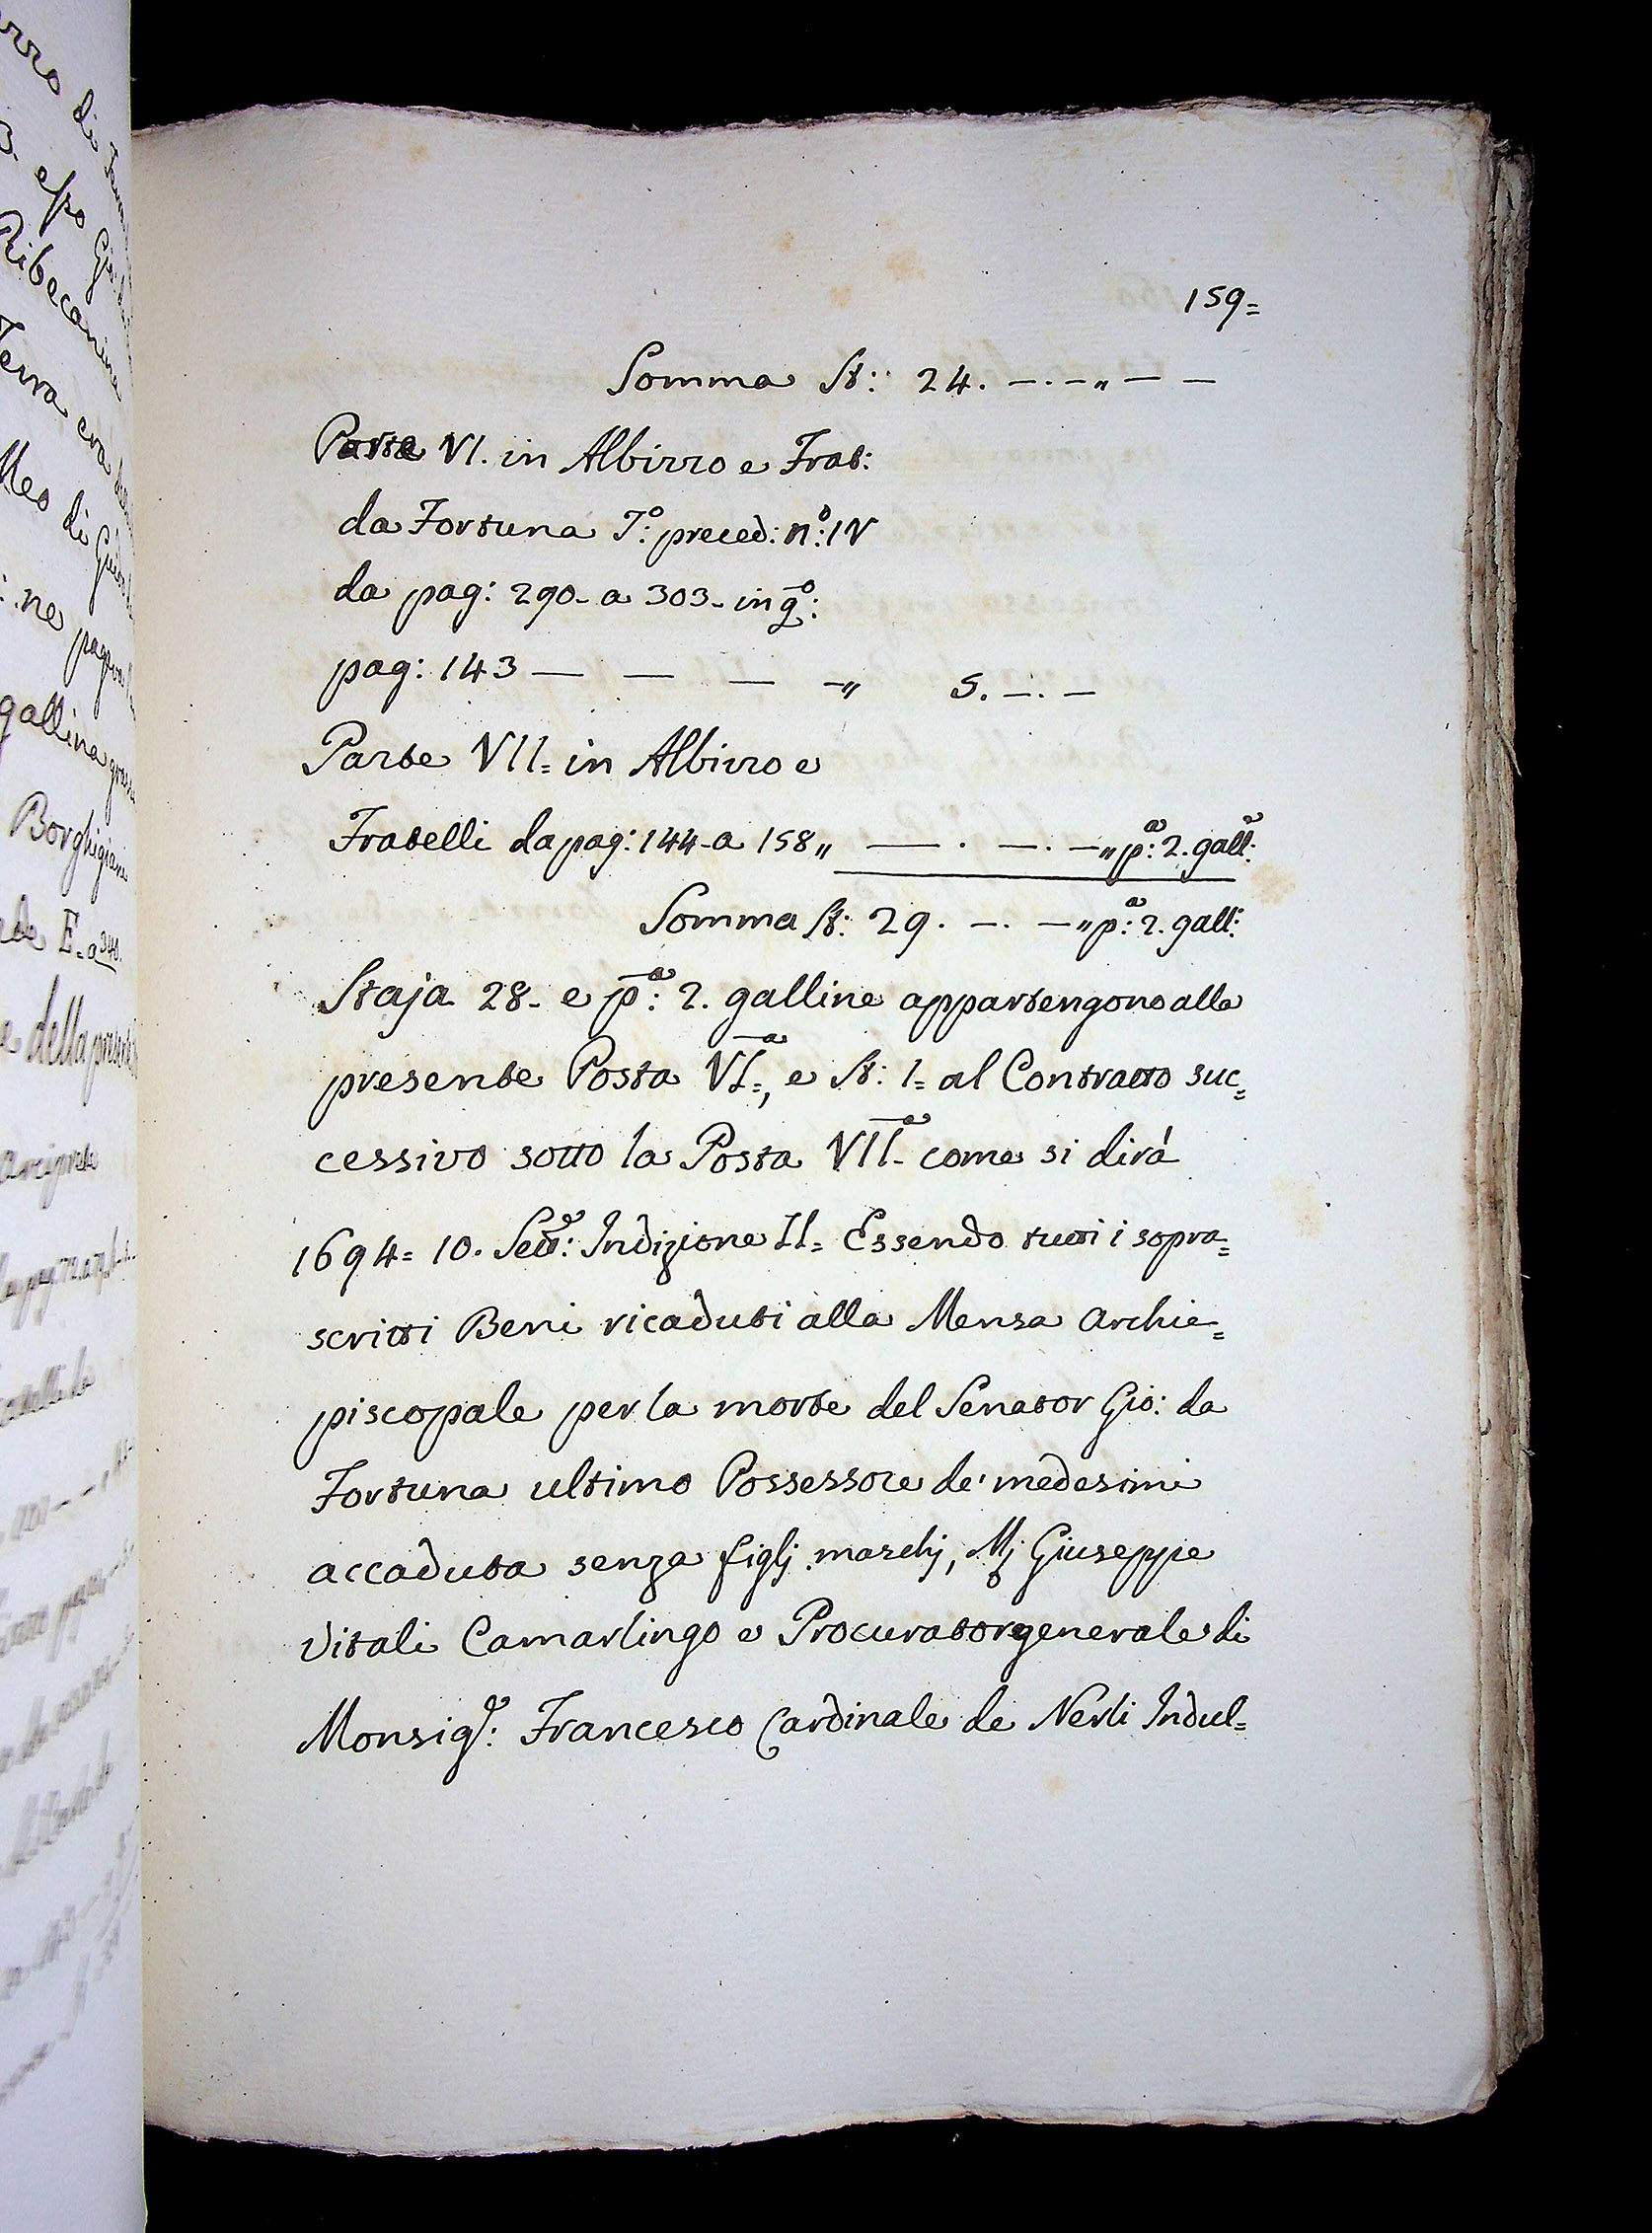 159=
Somma St: 24. —.—„ — —
Parte VI. in Albizzo e Frat:
da Fortuna T.º preced: n.º: IV
da pag: 290. a 303. in q.º:
pag: 143 — — — —„ 5. —. —
Parte VII= in Albizzo e
Fratelli da pag: 144. a 158„ — . —. —„ p.ª: 2. gall:
Somma St: 29. —. —„ p.ª: 2. gall:
Staja 28. e p.ª: 2. galline appartengono alla
presente Posta VI.ª=, e St: 1= al Contratto suc=
cessivo sotto la Posta VII.ª come si dirà
1694= 10. Indizione II= Essendo tutti i sopra=
scritti Beni ricaduti alla Mensa Archie=
piscopale per la morte del Senator Gio: da
Fortuna ultimo Possessore de' medesimi
accaduta senza figlj maschj, Mj Giuseppe
Vitali Camarlingo e Procurator generale di
Monsig.r: Francesco Cardinale de Nerli Indul=
Borghigiani
gallina